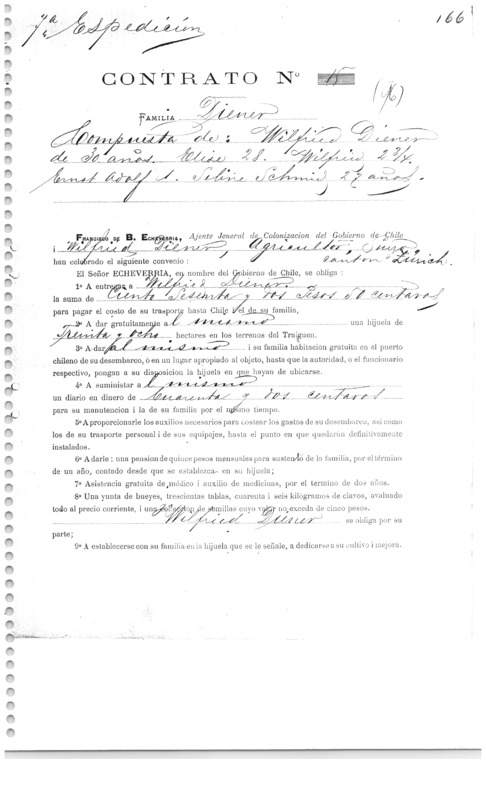 7ª Espedición
166
CONTRATO Nº 15
(96)
FAMILIA Diener
Compuesta de: Wilfried Diener
de 30 años. Elise 28. Wilfried 2 3/4.
Ernst Adolf 1. Seline Schmid, 27 años.
FRANCISCO DE B. ECHEVERRIA, Ajente Jeneral de Colonizacion del Gobierno de Chile
i Wilfried Diener, Agricultor, Suizo,
han celebrado el siguiente convenio: canton Zürich.
El Señor ECHEVERRIA, en nombre del Gobierno de Chile, se obliga:
1º A entregar a Wilfried Diener
la suma de Ciento Sesenta y dos Pesos 50 centavos
para pagar el costo de su trasporte hasta Chile i el de su familia,
2º A dar gratuitamente al mismo una hijuela de
Treinta y ocho hectares en los terrenos del Traiguen.
3º A dar al mismo i su familia habitación gratuita en el puerto
chileno de su desembarco, ó en un lugar apropiado al objeto, hasta que la autoridad, o el funcionario
respectivo, pongan a su disposicion la hijuela en que hayan de ubicarse.
4º A suministar al mismo
un diario en dinero de Cuarenta y dos centavos
para su manutencion i la de su familia por el mismo tiempo.
5º A proporcionarle los auxilios necesarios para costear los gastos de su desembarco, asi como
los de su trasporte personal i de sus equipajes, hasta el punto en que quedarán definitivamente
instalados.
6º A darle: una pension de quince pesos mensuales para sustento de la familia, por el término
de un año, contado desde que se establezca en su hijuela;
7º Asistencia gratuita de médico i auxilio de medicinas, por el termino de dos años.
8º Una yunta de bueyes, trescientas tablas, cuarenta i seis kilogramos de clavos, avaluado
todo al precio corriente, i una coleccion de semillas cuyo valor no exceda de cinco pesos.
Wilfried Diener se obliga por su
parte;
9º A establecerse con su familia en la hijuela que se le señale, a dedicarse a su cultivo i mejora.